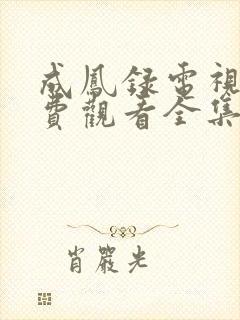 成鳳録電視
費觀看全集
肖嚴光